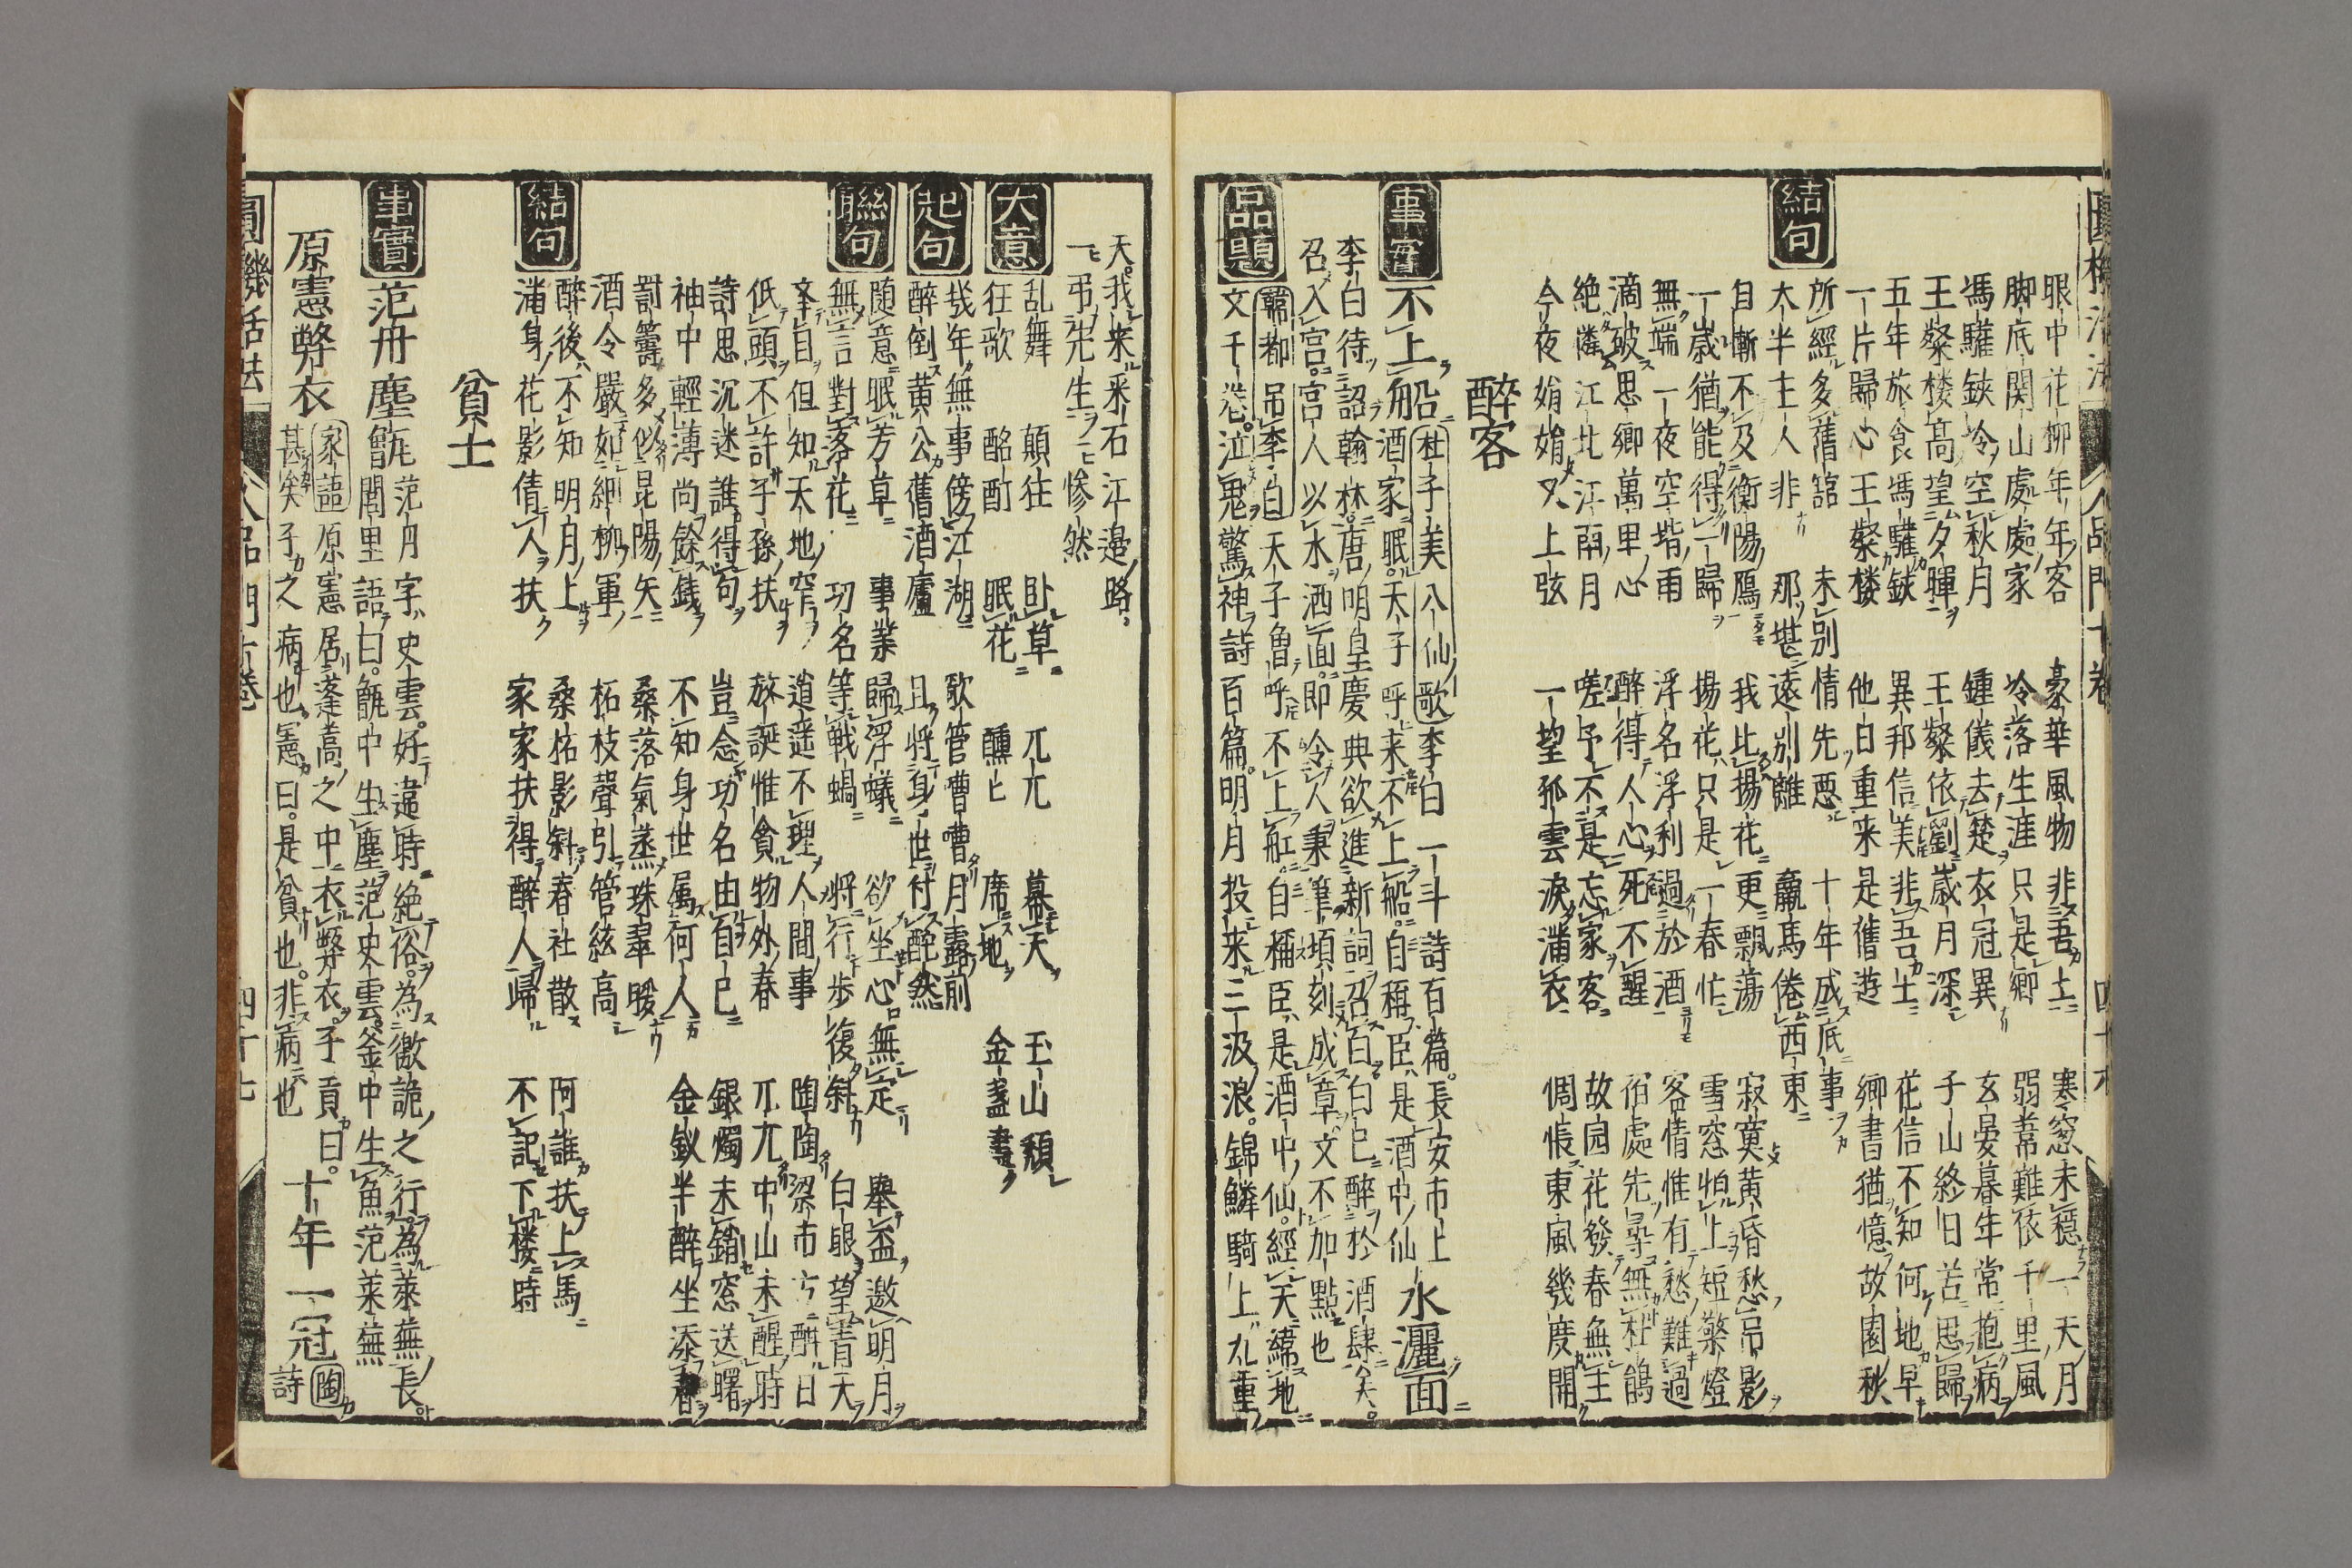 眼中花柳年年客 豪華風物非吾土 寒窓未穏一天月
脚底関山處處家 冷落生涯只是卿 弱蒂難依千里風
馮驩鋏冷空秋月 鍾儀去楚衣冠異 玄晏暮年常抱病
王粲楼高望夕暉 王粲依劉歳月深 子山終日苦思歸
五年旅食馮驩鋏 異邦信美非吾土 花信不知何地早
一片歸心王粲楼 他日重来是舊遊 卿書猶憶故園秋
結句
所經多舊館 未別情先悪 十年成底事
太半主人非 那堪遠別離 羸馬倦西東
自慚不及衡陽鴈 我比揚花更飄蕩 寂寞黄昏愁吊影
一歳猶能得一歸 揚花只是一春忙 雪窓怕上短檠燈
無端一夜空堦雨 浮名浮利過於酒 客情惟有愁難過
滴破思卿萬里心 醉得人心死不醒 宿處先尋無杜鵑
絶憐江北江南月 嗟予不是忘家客 故园花發春無主
今夜娟娟又上弦 一望孤雲涙滿衣 惆悵東風幾度開
醉客
事實
不上船 杜子美八仙歌 李白一斗詩百篇。長安市上
酒家眠。天子呼来不上船。自稱臣是酒中仙 水灑面
李白待詔翰林。唐明皇慶典欲進新詞召白白已醉於酒肆矣。
召入宮。宮人以水洒面。即令人秉筆頃刻成章文不加點也
品題
韓都吊李白 天子魯呼不上舡。自稱臣是酒中仙。經天緯地
文千巻。泣鬼驚神詩百篇。明月投来三汲浪。錦鱗騎上九重
天。我来采石江邉路。
一弔先生一惨然
大意
乱舞 顛狂 臥草 兀兀 幕天 玉山頽
狂歌 酩酊 眠花 醺醺 席地 金盞盡
起句
幾年無事傍江湖 歌管嘈嘈月露前
醉倒黄公舊酒廬 且将身世付酡然
聯句
随意眠芳草 事業歸浮蟻 欲坐心無定 擧盃邀明月
無言對落花 功名等戦蝸 将行歩復斜 白眼望青天
挙目但知天地窄 逍遥不理人間事 陶陶梁市方酣日
低頭不許子孫扶 放誕惟貪物外春 兀兀中山未醒時
詩思沉迷誰得句 豈念功名由自已 銀燭未銷窓送曙
袖中輕薄尚餘錢 不知身世属何人 金釵半醉坐添春
罰籌多似昆陽矢 桑落氣蒸珠翠暖
酒令嚴如細柳軍 柘枝聲引管絃高
結句
醉後不知明月上 桑柘影斜春社散 阿誰扶上馬
滿身花影倩人扶 家家扶得醉人歸 不記下楼時
貧士
事實
范丹塵甑 范丹字史雲。好違時絶俗。為激詭之行為萊蕪長
閭里語曰。甑中生塵范史雲。釜中生魚范萊蕪
原憲弊衣 家語 原憲居蓬蒿之中衣弊衣。子貢曰。
甚矣子之病也。憲曰。是貧也。非病也 十年一冠 陶詩